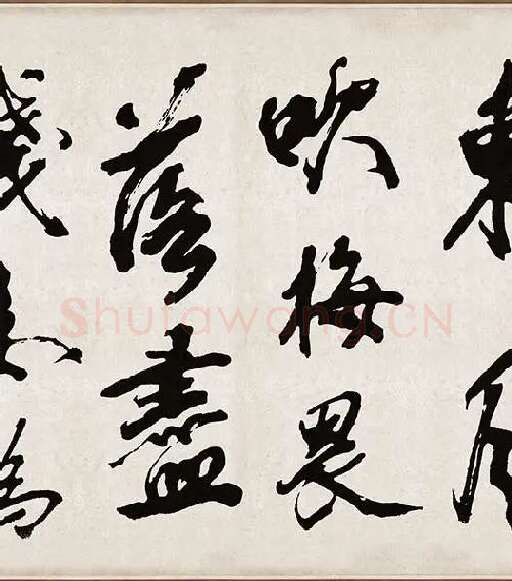 東風
吹梅畏
落盡
賤妾為
Shufawang.CN